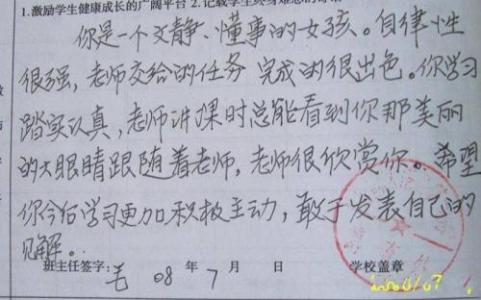 1.激励学生健康成长的广阔平台 2.记载学生终身难忘的
你是一个文静、懂事的女孩。自律性
很强，老师交给的任务完成的很出色。你学习
踏实认真，老师讲课时总能看到你那美丽
的大眼睛跟随着老师，老师很欣赏你。希望
你今后学习更加积极主动，敢于发表自己的
见解。
班主任签字： 08年7月 日 学校盖章